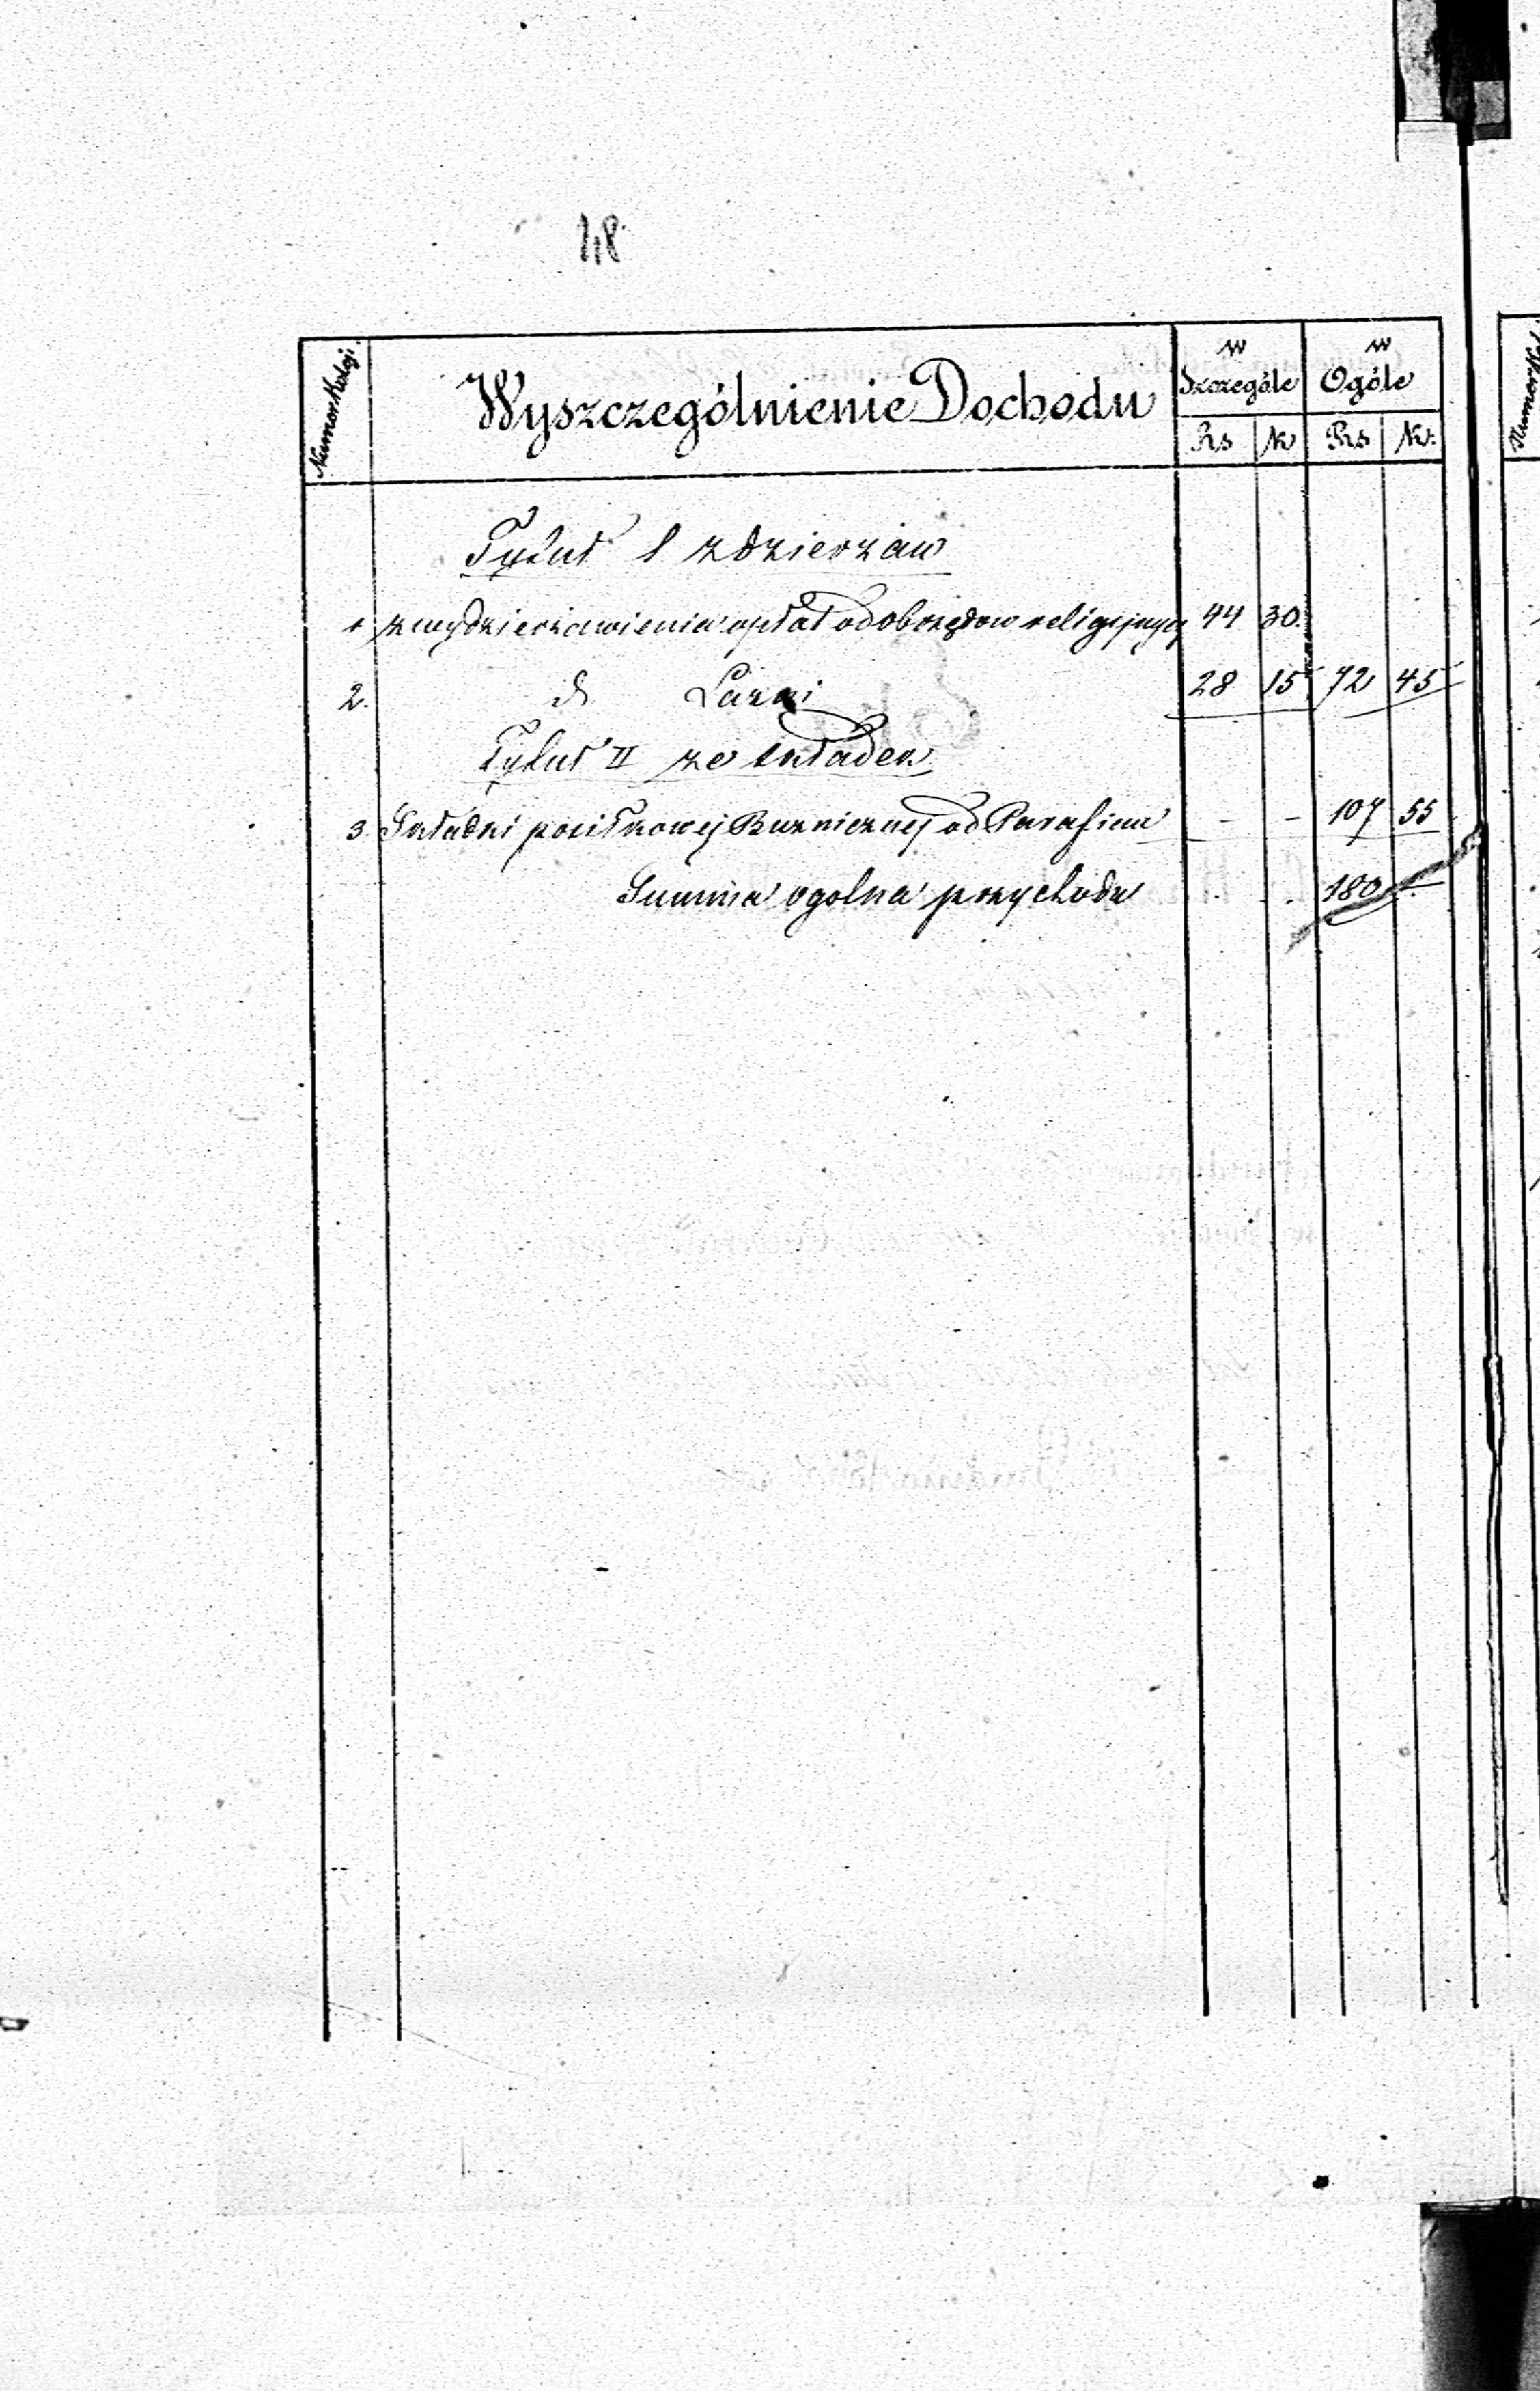 48
Numer Kolej. Wyszczególnienie Dochodu w Szczególe w Ogóle
Rs K Rs K.
Tytuł I z dzierzaw
1 z wydzierżawienia opłat od obrzędow religijnych 44 30.
2. dt Łazni 28 15 72 45
Tytuł II ze składek
3. Składki posiłkowej Buzniczney od Parafian - - 107 55
Summa ogolna przychodu . . 180 —